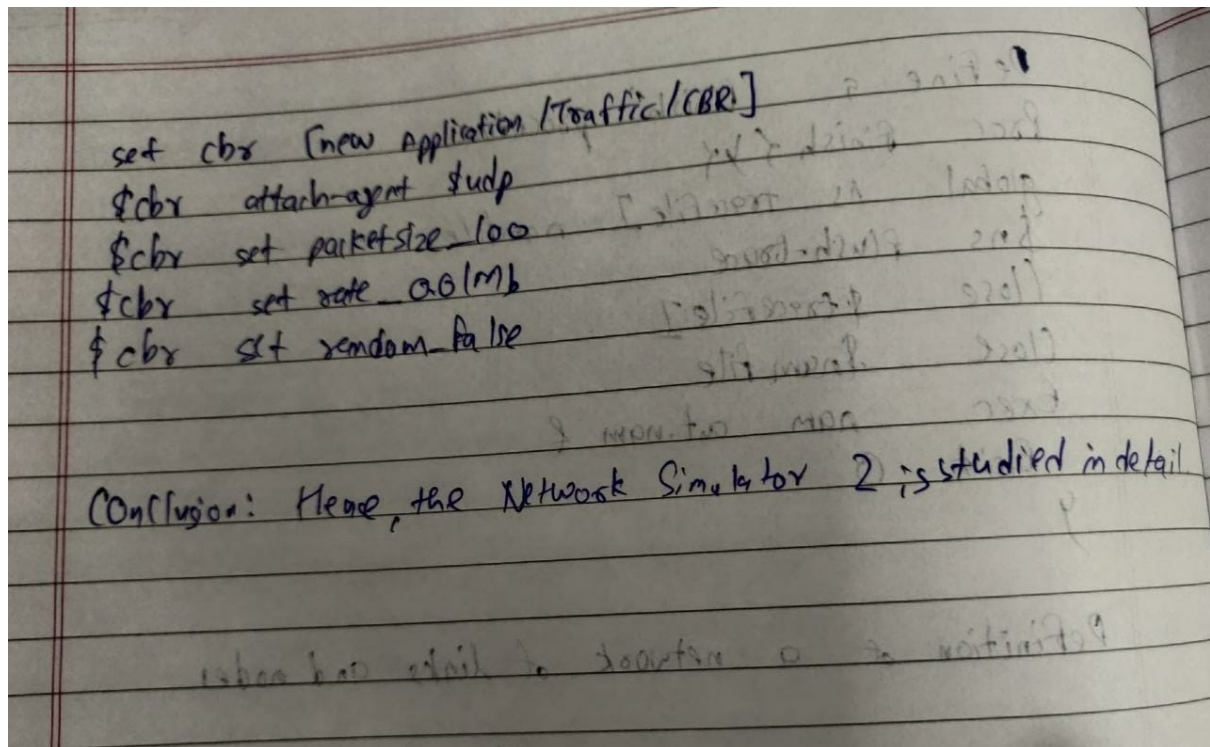 set cbr [new Application /Traffic/CBR]
$cbr attach-agent $udp
$cbr set packetsize_100
$cbr set rate_0.01Mb
$cbr set remdom_false
Conclusion: Hence, the Network Simulator 2 is studied in detail